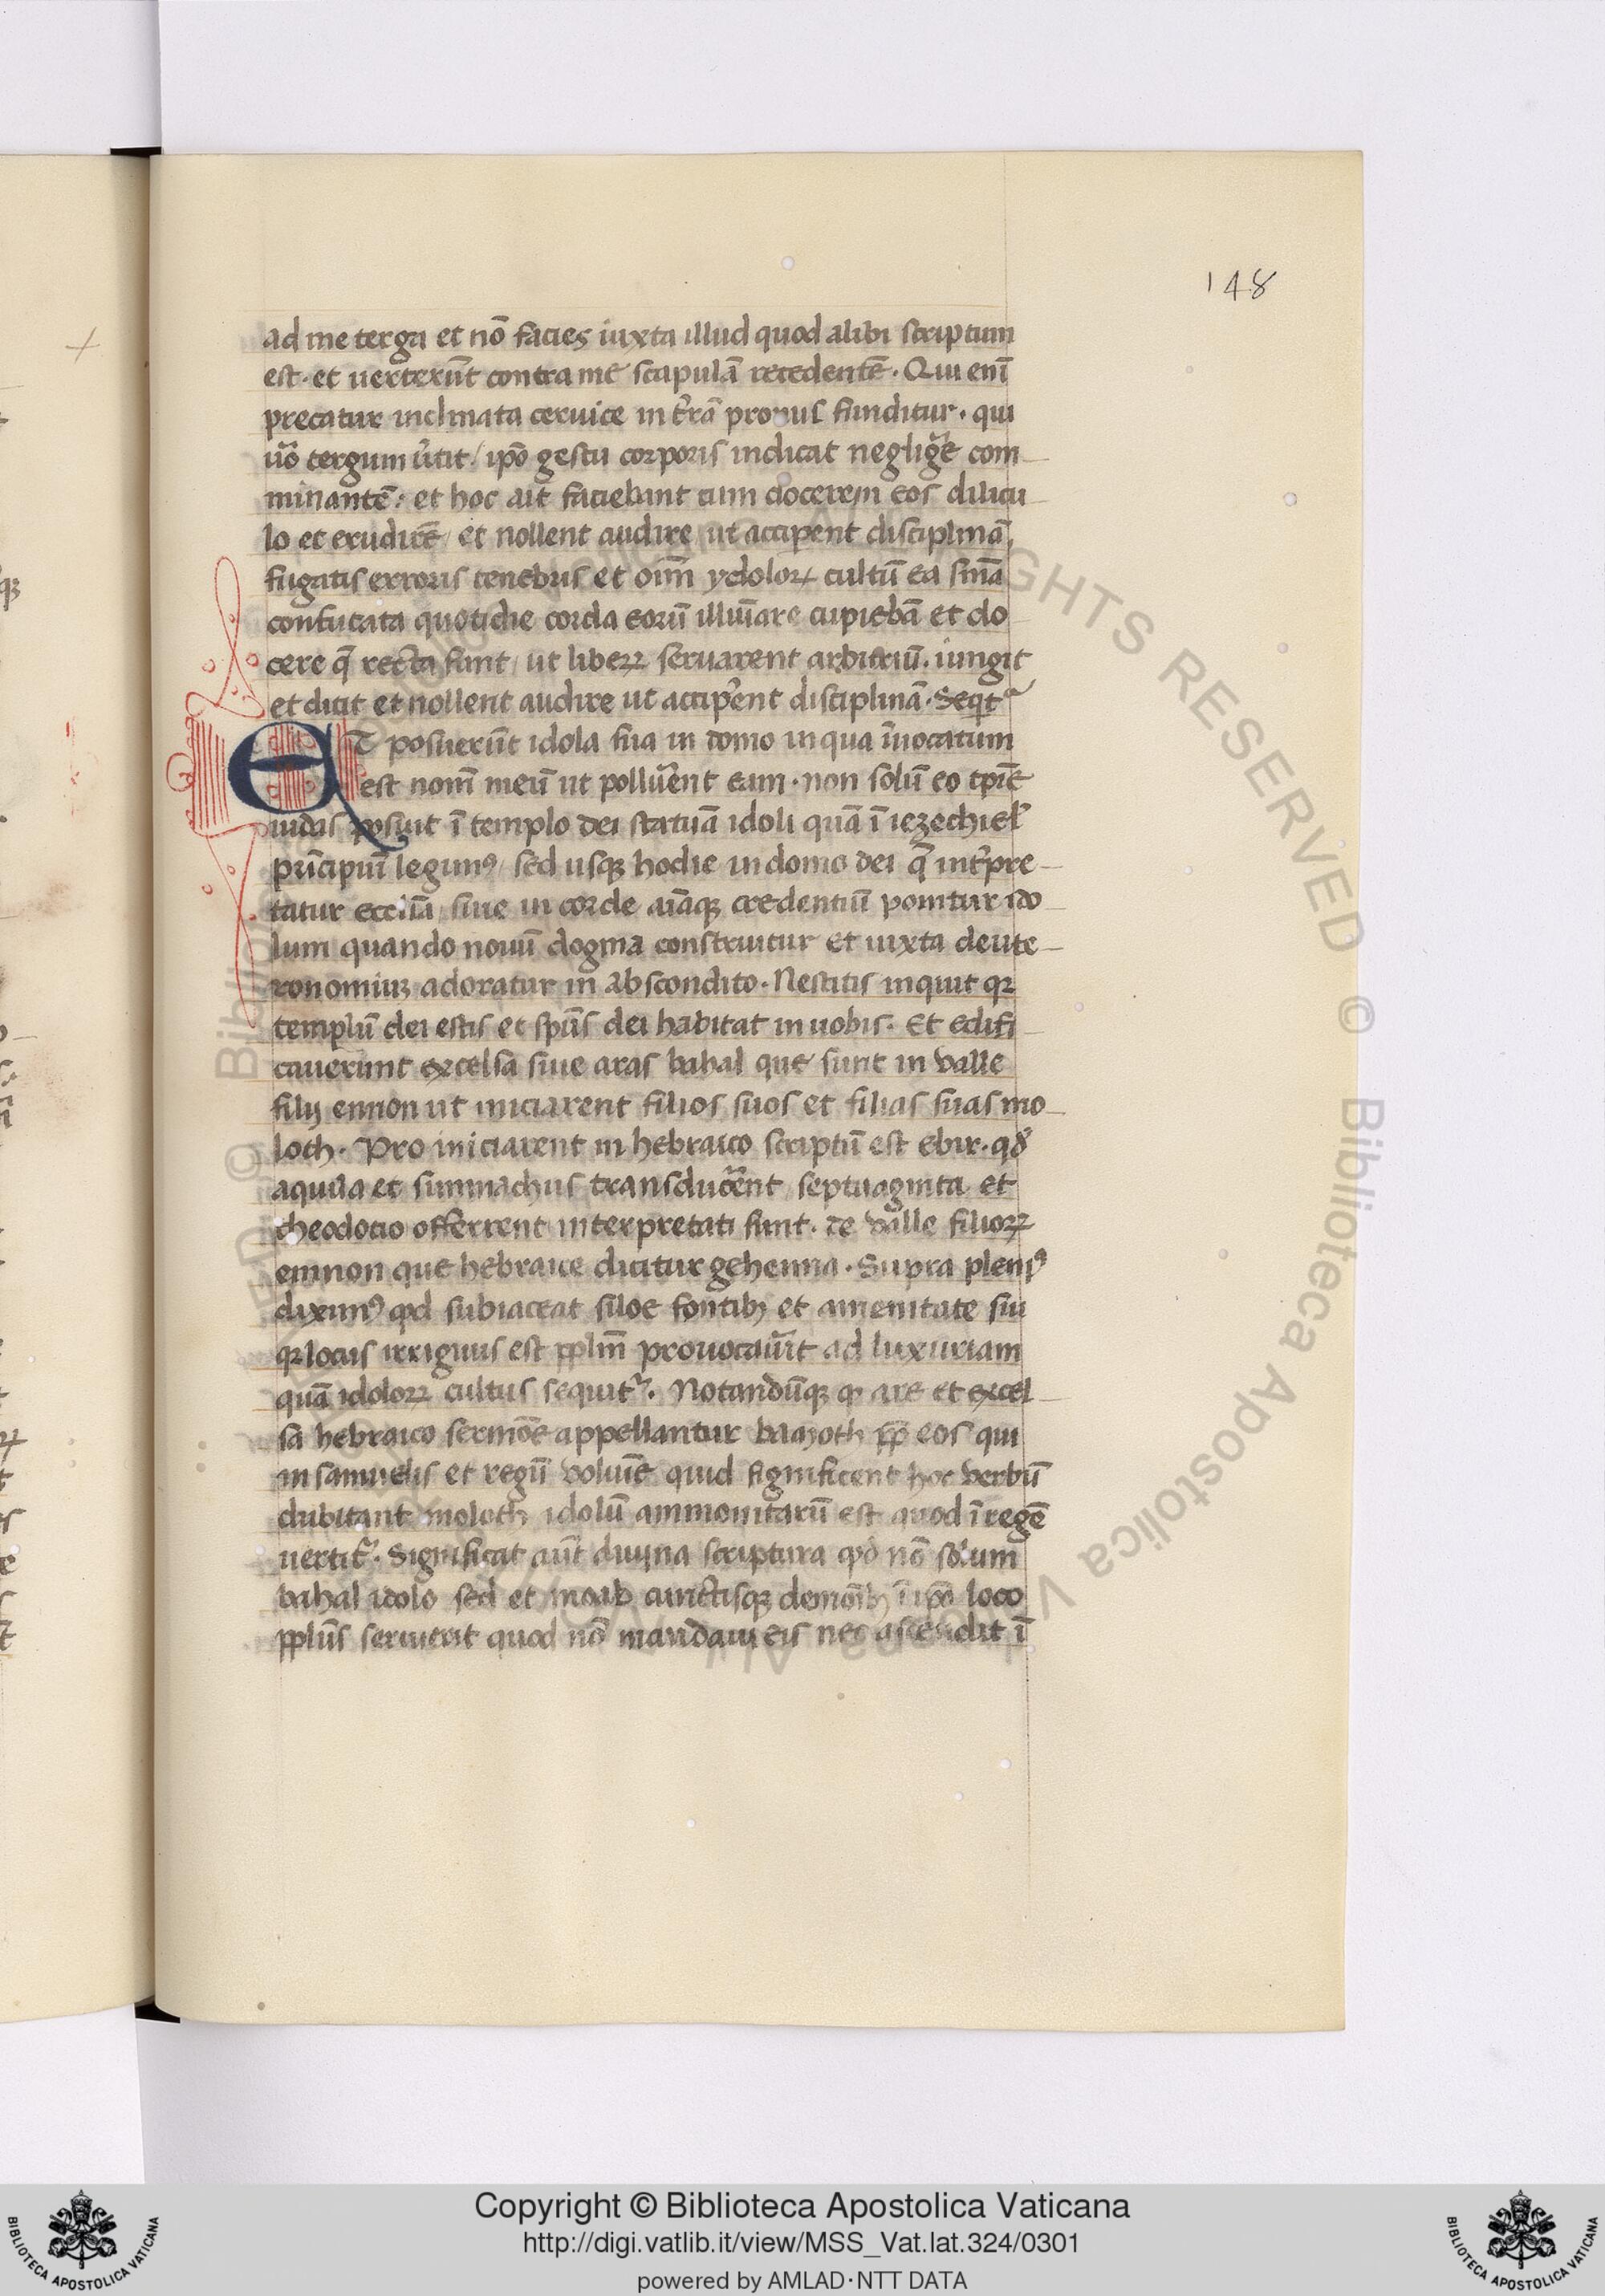 148
ad me terga et nō facies iuxta illud quod alibi scriptum
est· et uerterūt contra me scapulā recedentē· Qui enī
precatur inclinata ceruice in t̉rā pronus funditur· qui
ủo tergum ủtit/ ip̄o gestu corporis indicat negliḡe com
minantē: et hoc ait faciebant cum docerem eos dilicu
lo et erudirē/ et nollent audire ut accipent disciplinā,
fugatis erroris tenebris et oim̄ ydoloꝝ cultū ea sn̄ia
confutata quotidie corda eorū illuīare cupiebā et do
cere q̄ recta sunt/ ut liberꝝ seruarent arbitriū. iungit
et dicit et nollent audire ut accip̉ent disciplinā· Seqt̉
ET posuerūt idola sua in domo in qua īuocatum
est nom̄ meū ut pollủent eam· non solū eo tp̄re
iudas posuit ī templo dei statuā idoli quā ī iezechiel̉
prīcipiū legimꝰ/ sed usqꝫ hodie in domo dei q̄ int̉pre
tatur eccl̄ia siue in corde aīaqꝫ credentiū ponitur ido
lum quando nouū dogma construitur et iuxta deute
ronomiuꝫ adoratur in abscondito· Nescitis inquit qꝛ
templū dei estis et sp̄us dei habitat in uobis· Et edifi
cauerunt excelsa siue aras bahal que sunt in valle
filij ennon ut iniciarent filios suos et filias suas mo
loth· Pro iniciarent in hebraico scriptū est ebir· qđ
aquila et simmachus transduc̉ent/ septuaginta et
theodotio offerrent interpretati sunt· de valle filioꝝ
ennon que hebraice dicitur gehenna· Supra plenꝰ
diximꝰ qd subiaceat siloe fontibꝫ et amenitate sui
qꝛ locus irriguus est pplm̄ prouocaủit ad luxuriam
quā idoloꝝ cultus sequit̉· Notandūqꝫ ꝙ are et excel
sa hebraico sermōe appellantur bamoth ꝓp̄ eos qui
in samuelis et regū volumīe quid significent hoc verbū
dubitant moloth idolū ammonitarū est quod ī regē
uertit̉· Significat aūt diuina scriptura ꝙđ nō solum
bahal idolo sed et moab cunctisqꝫ demonibꝫ ī ip̄o loco
pplūs seruierit quod nō mandaui eis nec ascendit ī
Copyright © Biblioteca Apostolica Vaticana
http://digi.vatlib.it/view/MSS_Vat.lat.324/0301
powered by AMLAD·NTT DATA